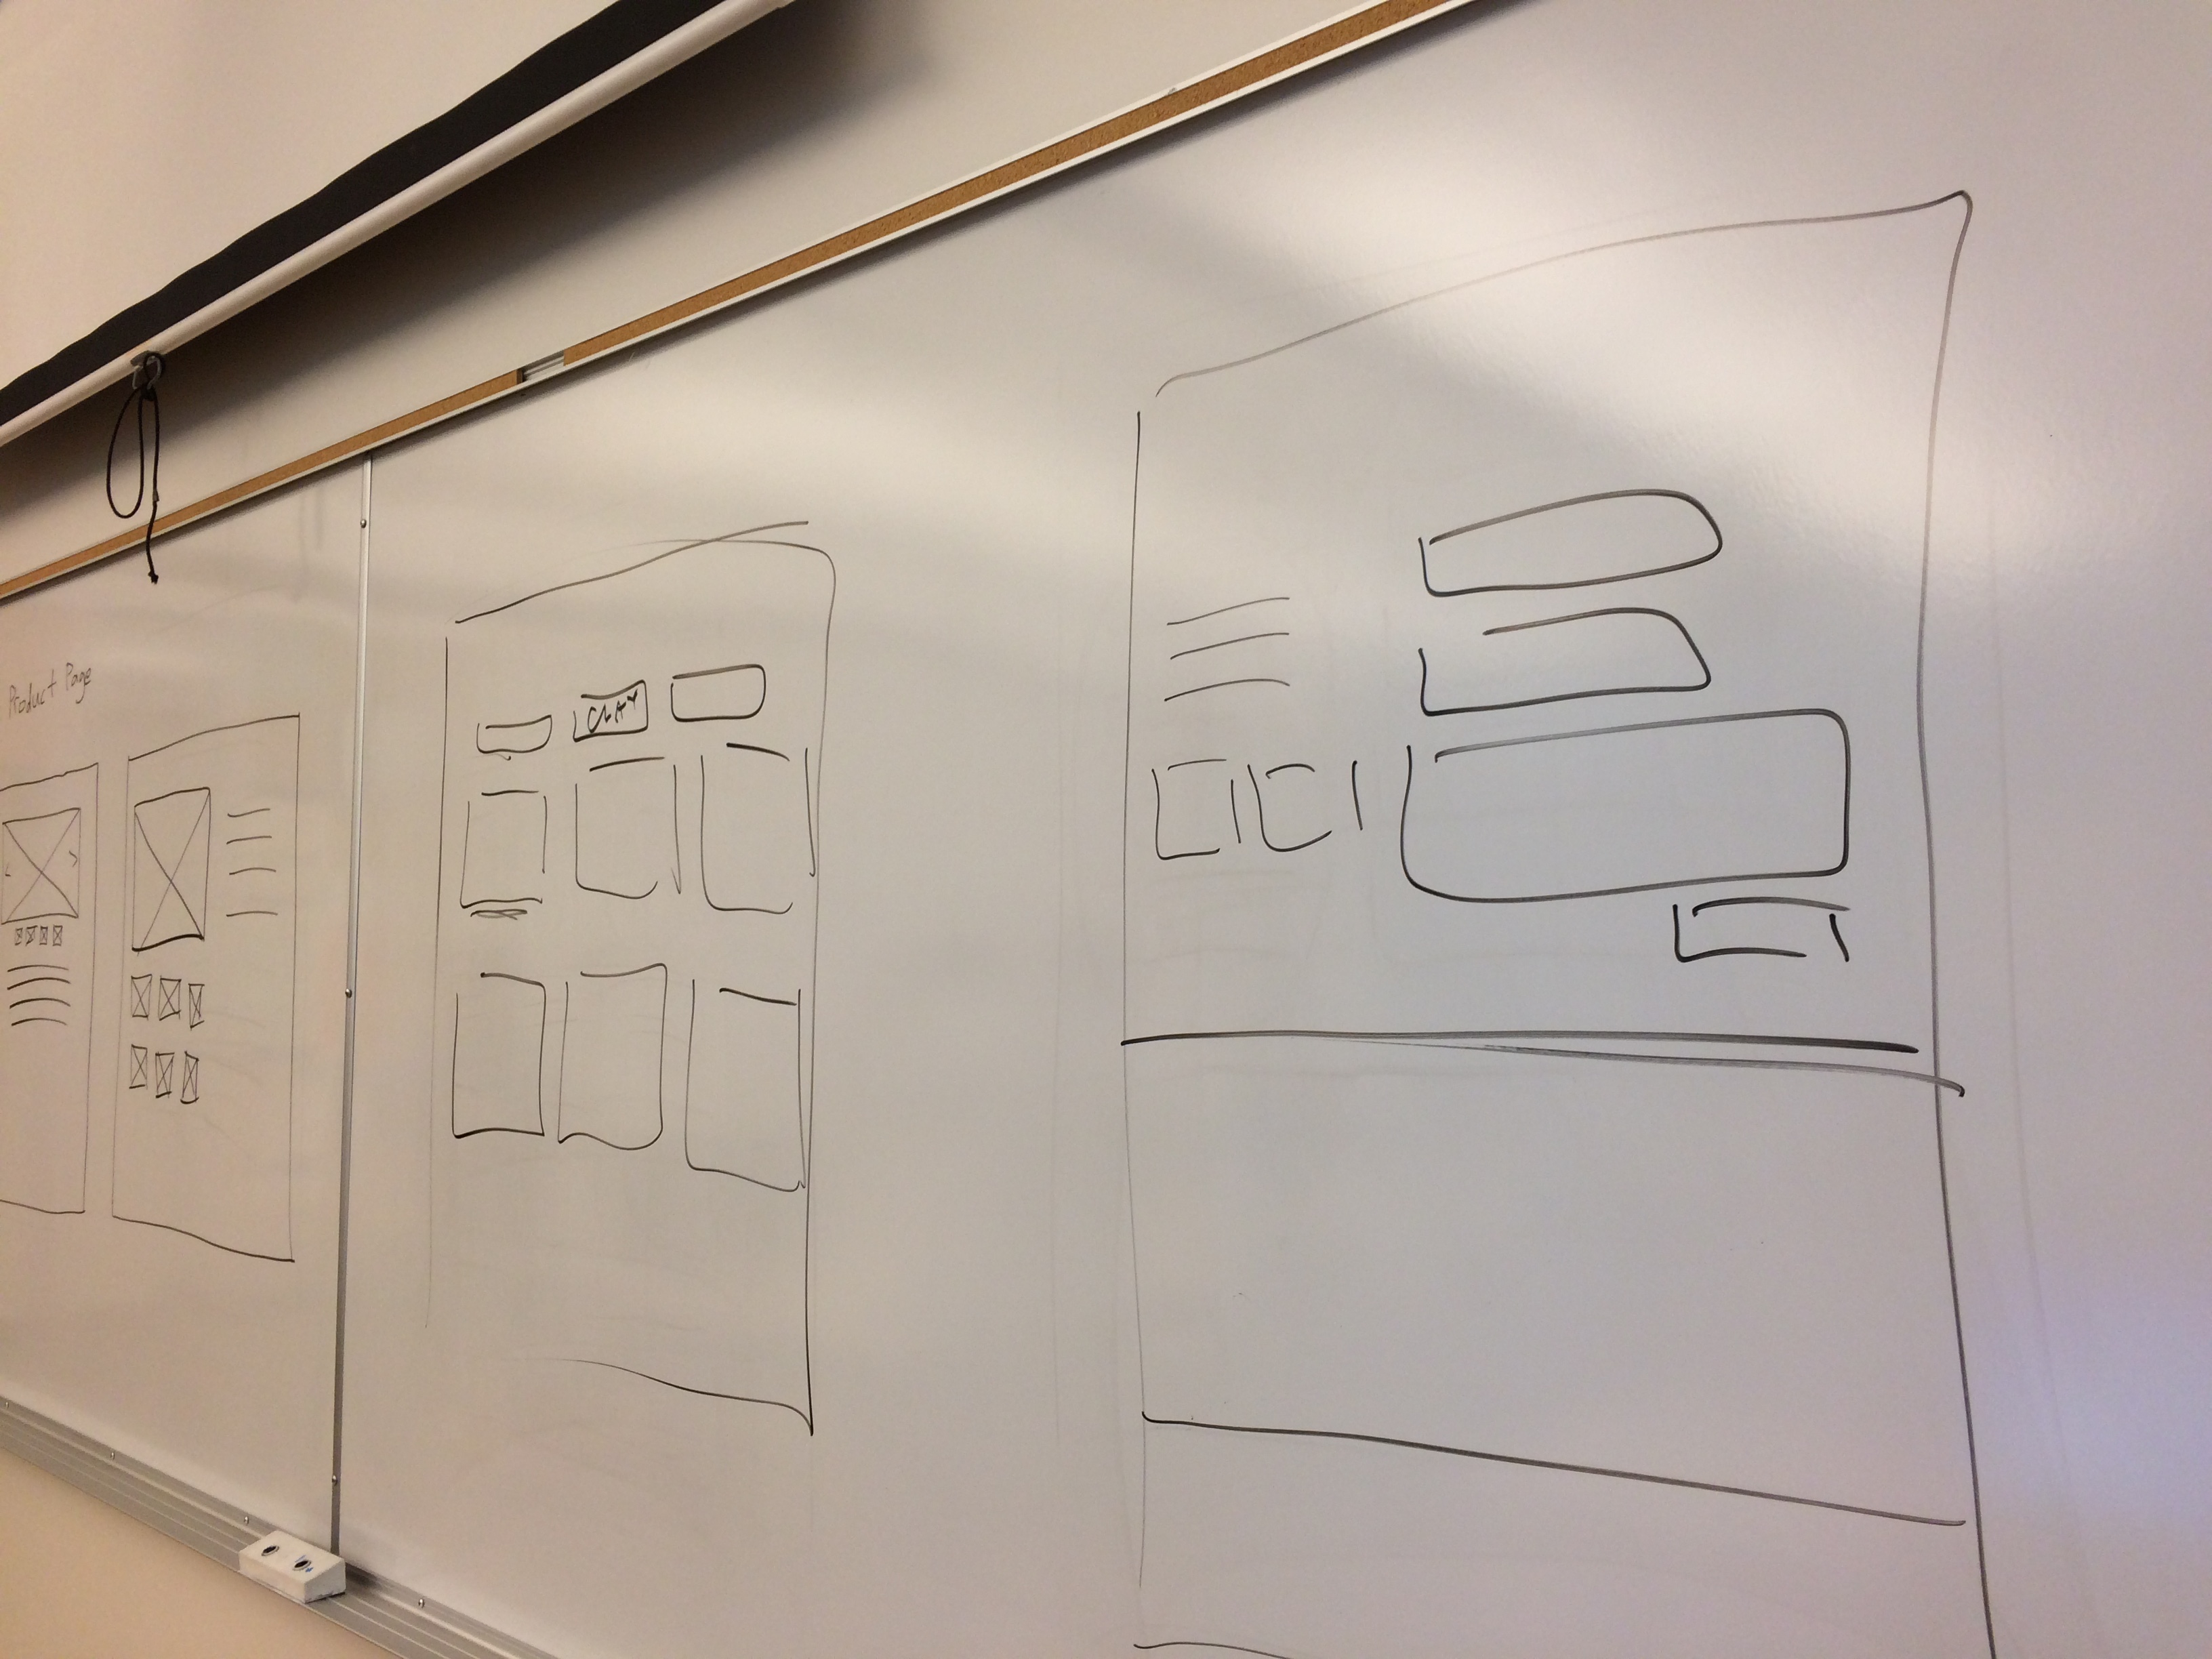 Product Page
CLAY